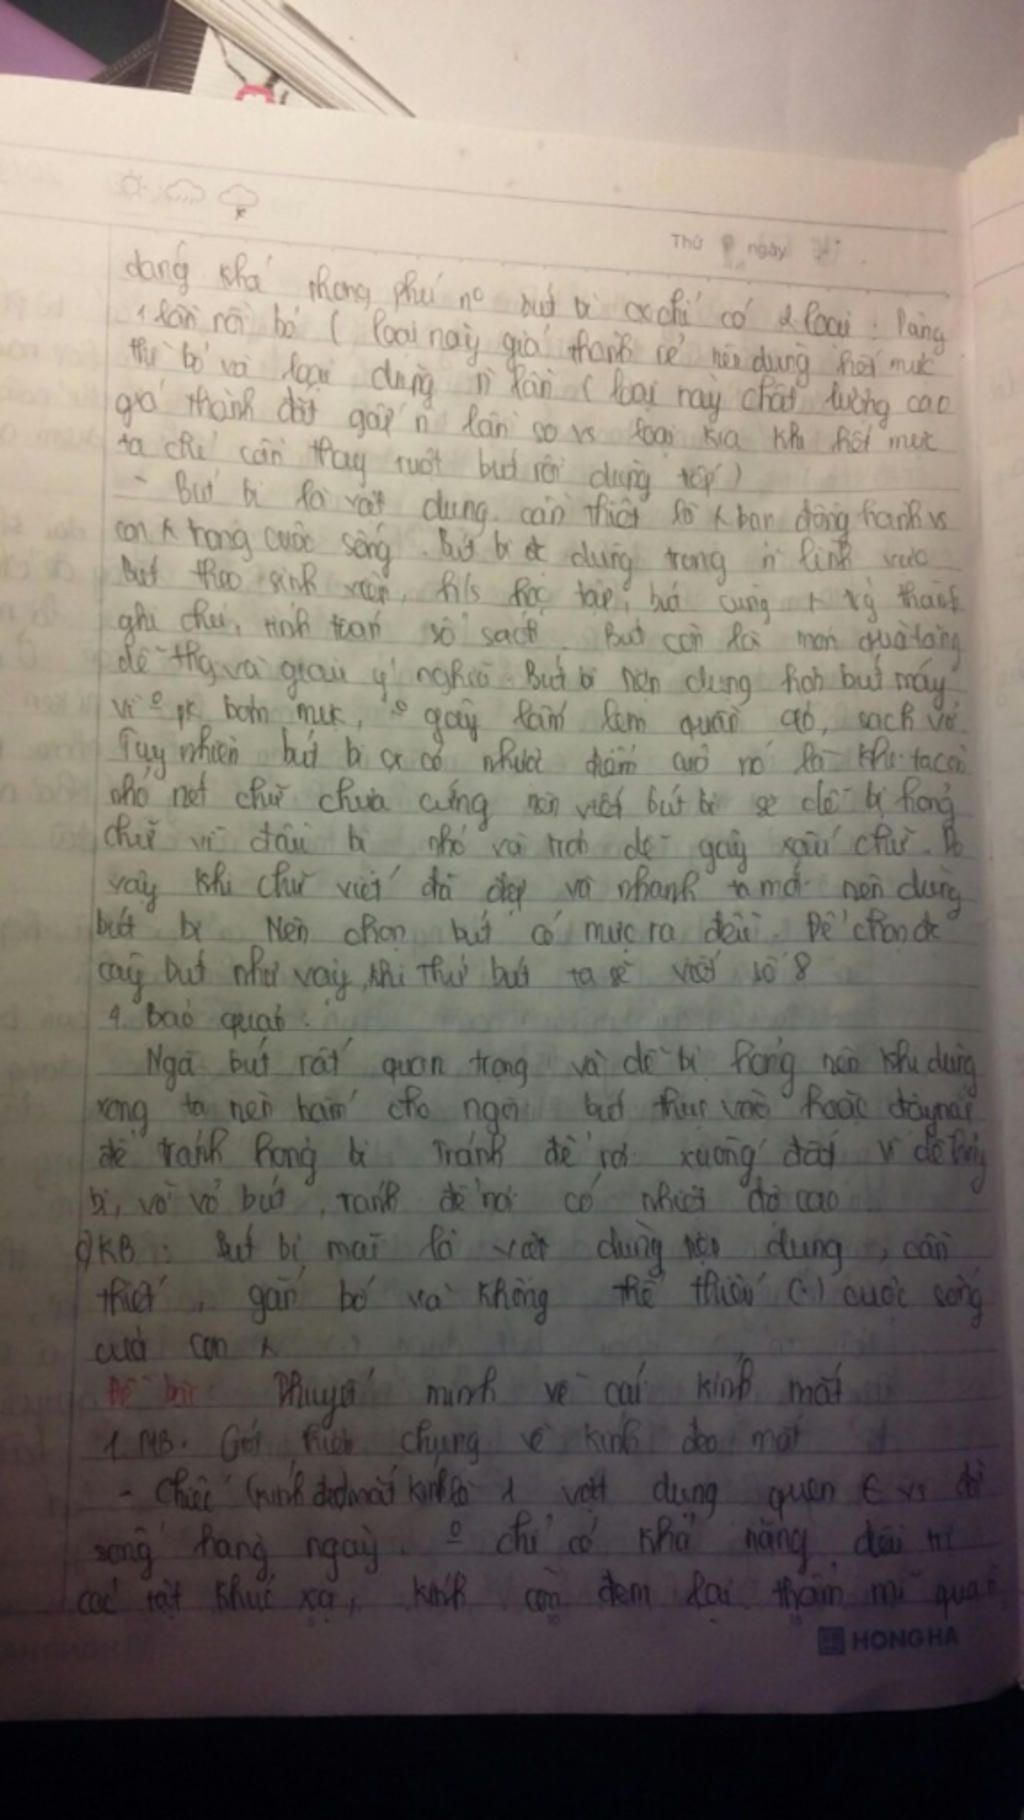 Thứ ngày
dạng khá phong phú nº bút bi cx chỉ có 2 loại: Dùng
1 lần rồi bỏ ( loại này giá thành rẻ nên dùng hết mực
thì bỏ và loại dùng n lần ( loại này chất lượng cao
giá thành đắt gấp n lần so vs loại kia khi hết mực
ta chỉ cần thay ruột bút rồi dùng tiếp)
- Bút bi là vật dụng cần thiết là bạn đồng hành vs
con trong cuộc sống. Bút bi đc dùng trong n lĩnh vực
Bút theo sinh viên, h/s học tập, bá cùng thành
ghi chú, tính toán sổ sách. Bút còn là món quà tặng
dễ thg và giàu ý nghĩa. Bút bi tiện dụng hơn bút máy
vì º pk bơm mực, º gây lấm lem quần áo, sách vở
Tuy nhiên bút bi cx có nhược điểm của nó là khi ta còn
nhỏ nét chữ chưa cứng nên viết bút bi sẽ dễ bị hỏng
chữ vì đầu bi nhỏ và trơn dễ gây xấu chữ. Do
vậy khi chữ viết đã đẹp và nhanh ta mới nên dùng
bút bi Nên chọn bút có mực ra đều. Để chọn đc
cây bút như vậy, khi thử bút ta sẽ viết số 8
4. Bảo quản:
Ngòi bút rất quan trọng và dễ bị hỏng nên khi dùng
xong ta nên bấm cho ngòi bút thụt vào hoặc đậy nắp
để tránh hỏng bi Tránh để rơi xuống đất vì dễ hỏng
bi, vỡ vỏ bút, tránh để nơi có nhiệt độ cao
KB: Bút bi mãi là vật dụng tiện dụng, cần
thiết, gắn bó và không thể thiếu (.) cuộc sống
của con
Đề bài: Thuyết minh về cái kính mắt
1. MB. Giới thiệu chung về kính đeo mắt
- Chiếc kính là 1 vật dụng quen € vs đời
sống hàng ngày. º chỉ có khả năng điều trị
các tật khúc xạ, kính còn đem lại thẩm mĩ quan
HONG HA